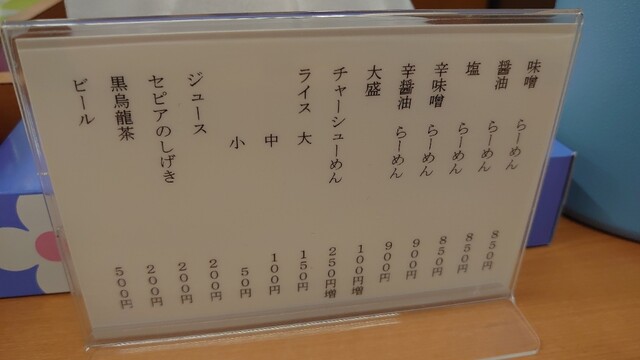 味噌 らーめん 850円
醤油 らーめん 850円
塩 らーめん 850円
辛味噌 らーめん 900円
辛醤油 らーめん 900円
大盛 100円増
チャーシューめん 250円増
ライス 大 150円
中 100円
小 50円
ジュース 200円
セピアのしげき 200円
黒烏龍茶 200円
ビール 500円